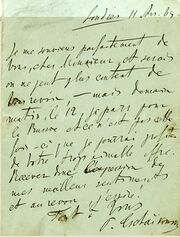 Londres 11 Avr. 89
Je me souviens parfaitement de
vous, cher Monsieur et serais
on ne peut plus content de
vous revoir – mais demain
matin, le 12, je pars pour
la Russie et ce n'est pas cette
fois-ci que je pourrai profiter
de votre trop aimable offre.
Recevez une expression de
mes meilleurs sentiments
et au revoir j'espère.
Tout à Vous
P.